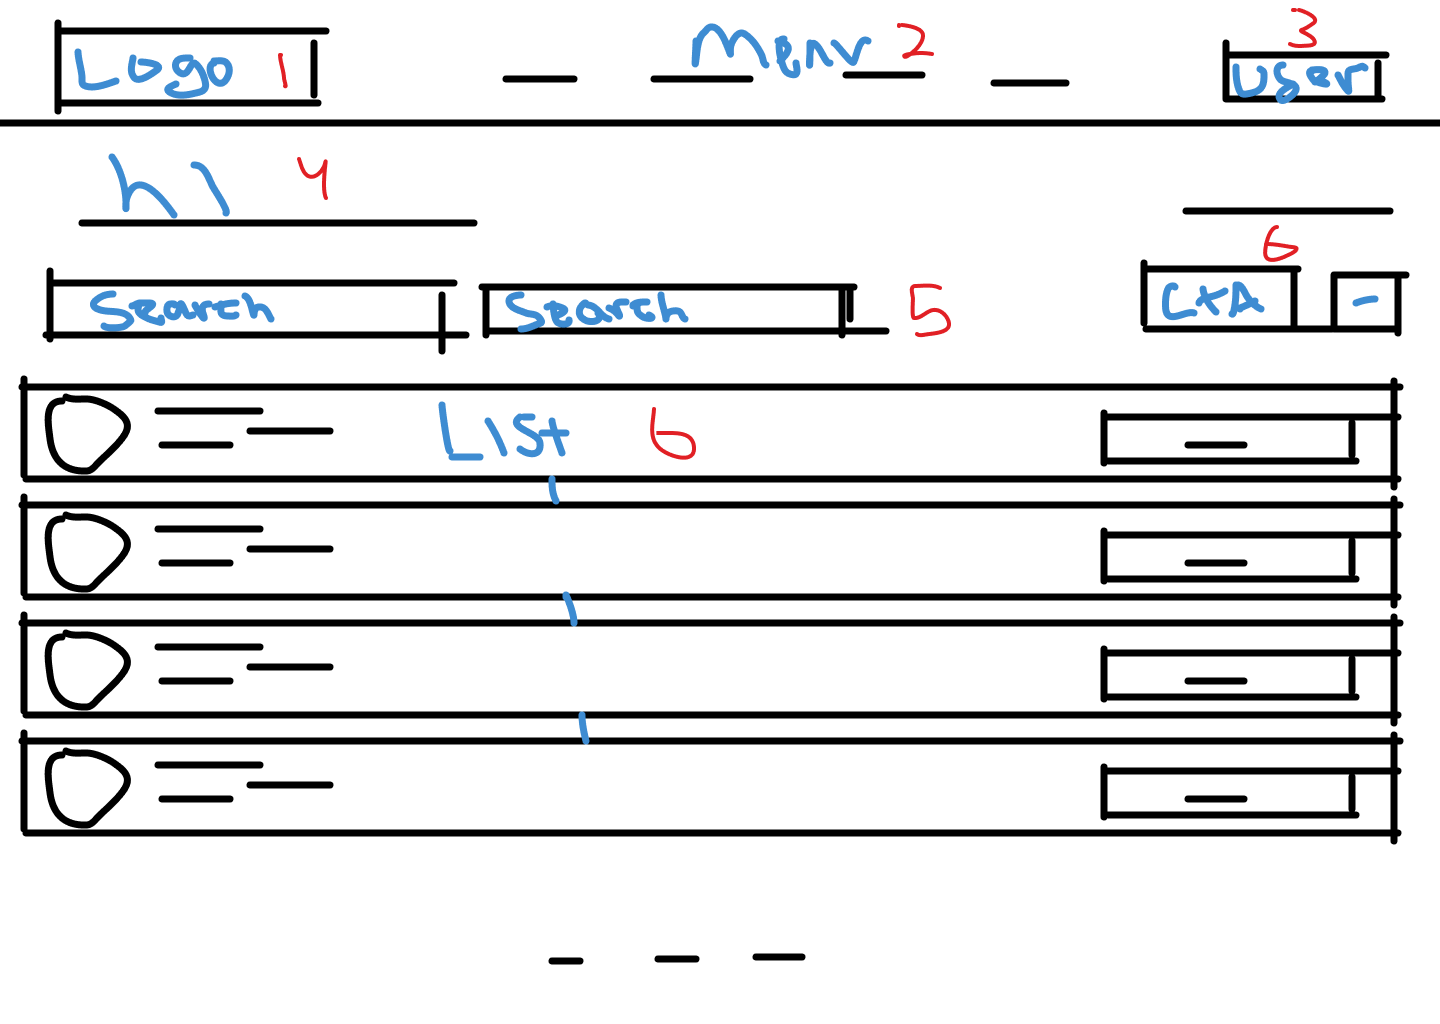 Logo 1
Menu 2
3
User
h1 4
6
Search
Search
5
CtA
-
List 6